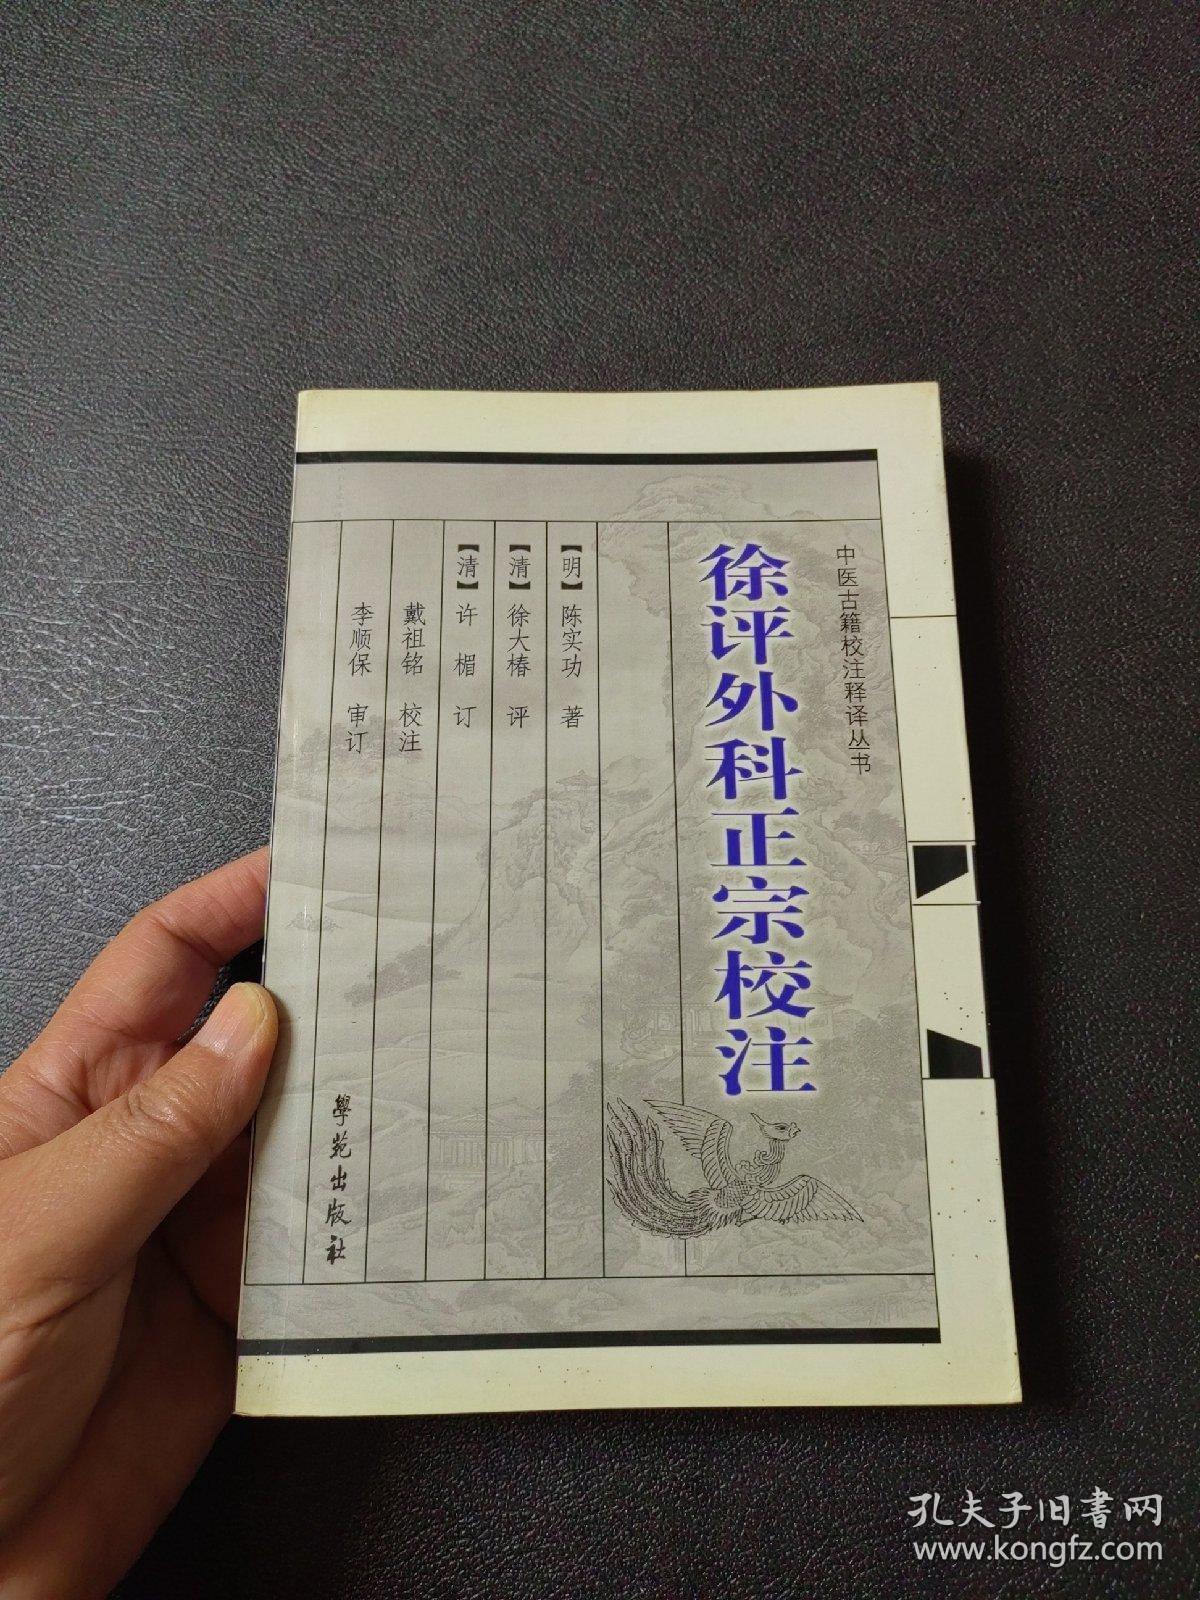 中医古籍校注释译丛书
徐评外科正宗校注
【明】陈实功 著
【清】徐大椿 评
【清】许 楣 订
戴祖铭 校注
李顺保 审订
學苑出版社
孔夫子旧書网
www.kongfz.com